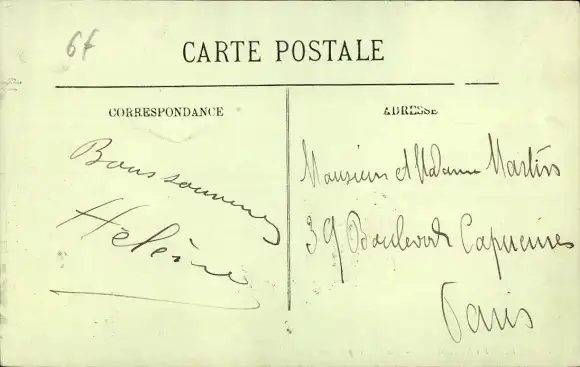 6f
CARTE POSTALE
CORRESPONDANCE
ADRESSE
Bons souvenirs
Hélène
Monsieur et Madame Martins
39 Boulevard Capucines
Paris